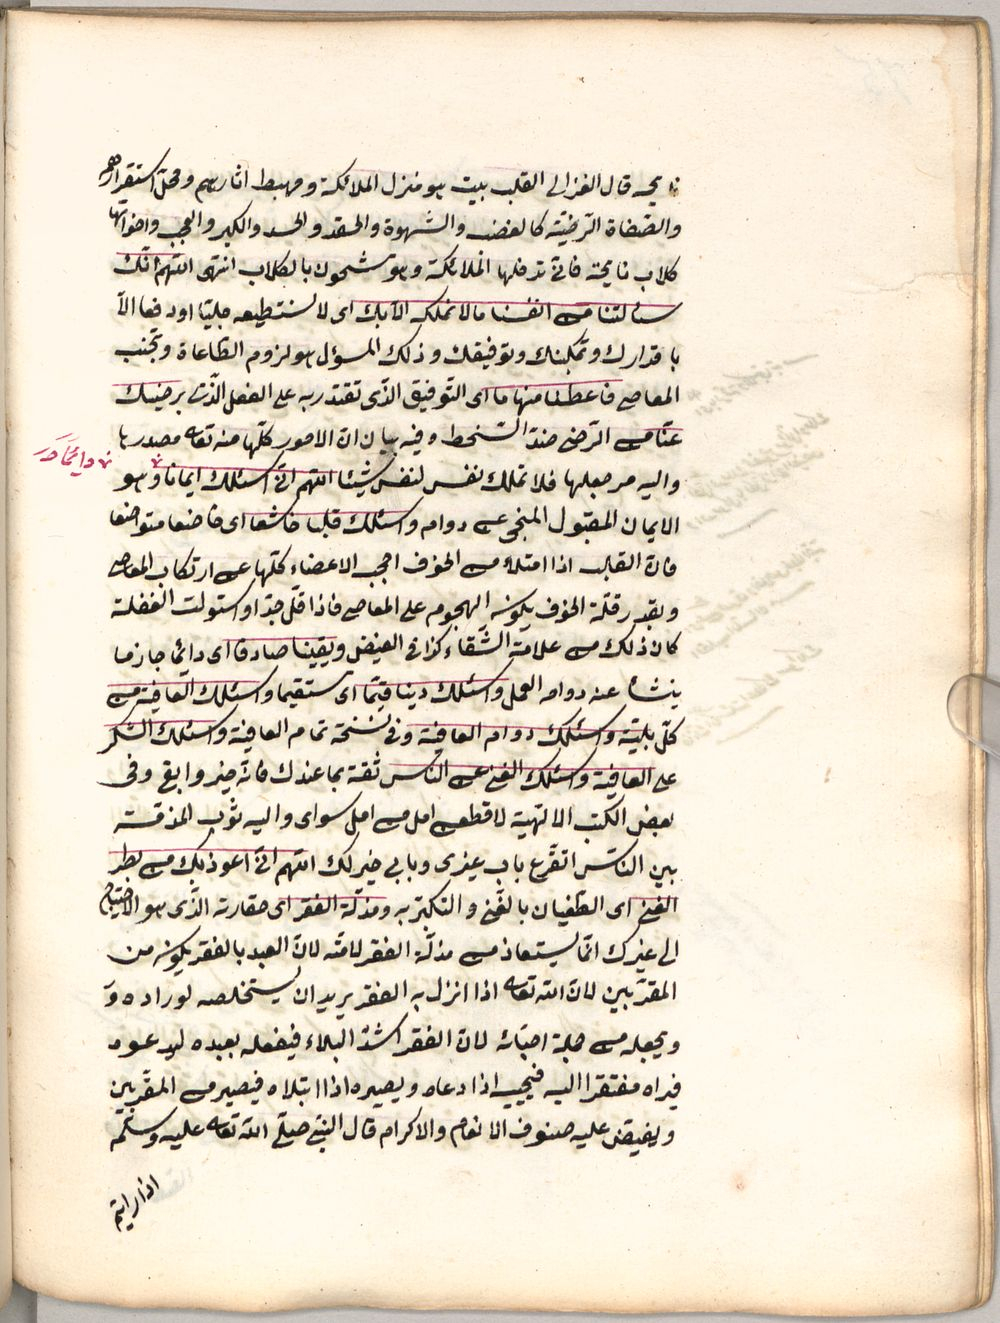 نابحة قال الغزالي القلب بيت هو منزل الملائكة ومهبط اثارهم ومحل استقرارهم
والصفاة الرضية كالغضب والشهوة والحقد والحسد والكبر والعجب واخواتها
كلاب نابحة فانى تدخلها الملائكة وهو مشحون بالكلاب انتهى اللهم انك
سئلتنا من انفسنا مالا نملكه الا بك اى لا نستطيعه جلبا او دفعا الا
باقدارك وتمكينك وتوفيقك وذلك المسؤل هو لزوم الطاعاة وتجنب
المعاصى فاعطنا منها ما اى التوفيق الذى تقتدر به على الفعل الذى يرضيك
عنا من الرضى ضد السخط وفيه بيان ان الامور كلها منه تعالى مصدرها
واليه مرجعها فلا تملك نفس لنفس شيئا اللهم انى اسئلك ايمانا وهو
دائما صح
الايمان المقبول المنجى عن دوام واسئلك قلبا خاشعا اى خاضعا متواضعا
فان القلب اذا امتلاء من الخوف احجم الاعضاء كلها عن ارتكاب المعاصى
وبقدر قلة الخوف يكون الهجوم على المعاصى فاذا قل جدا واستولت الغفلة
كان ذلك من علامة الشقاء كذا فى الفيض ويقينا صادقا اى دائما جازما
ينشأ عنه دوام العمل واسئلك دينا قيما اى مستقيما واسئلك العافية من
كل بلية واسئلك دوام العافية وفى نسخة تمام العافية واسئلك الشكر
على العافية واسئلك الغنى عن الناس ثقة بما عندك فانه خير وابقى وفى
بعض الكتب الالهية لاقطعن امل من امل سواى والبسه ثوب المذلة
بين الناس اتقرع باب غيرى وبابى خير لك اللهم انى اعوذ بك من بطر
الغنى اى الطغيان بالغنى والتكبر به ومذلة الفقر اى حقارته الذى هو الاحتياج
الى غيرك انما يستعاذ من مذلة الفقر لا منه لان العبد بالفقر يكون من
المقربين لان الله تعالى اذا انزل به الفقر يريد ان يستخلصه لوراده و
ويجعله من جملة احبائه لان الفقر اشد البلاء فيفعله بعبده ليدعوه
فيراه مفتقرا اليه فيجيب اذا دعاه ويصيره اذا ابتلاه فيصير من المقربين
ويفيض عليه صنوف الانعام والاكرام قال النبى صلى الله تعالى عليه وسلم
اذا رايتم